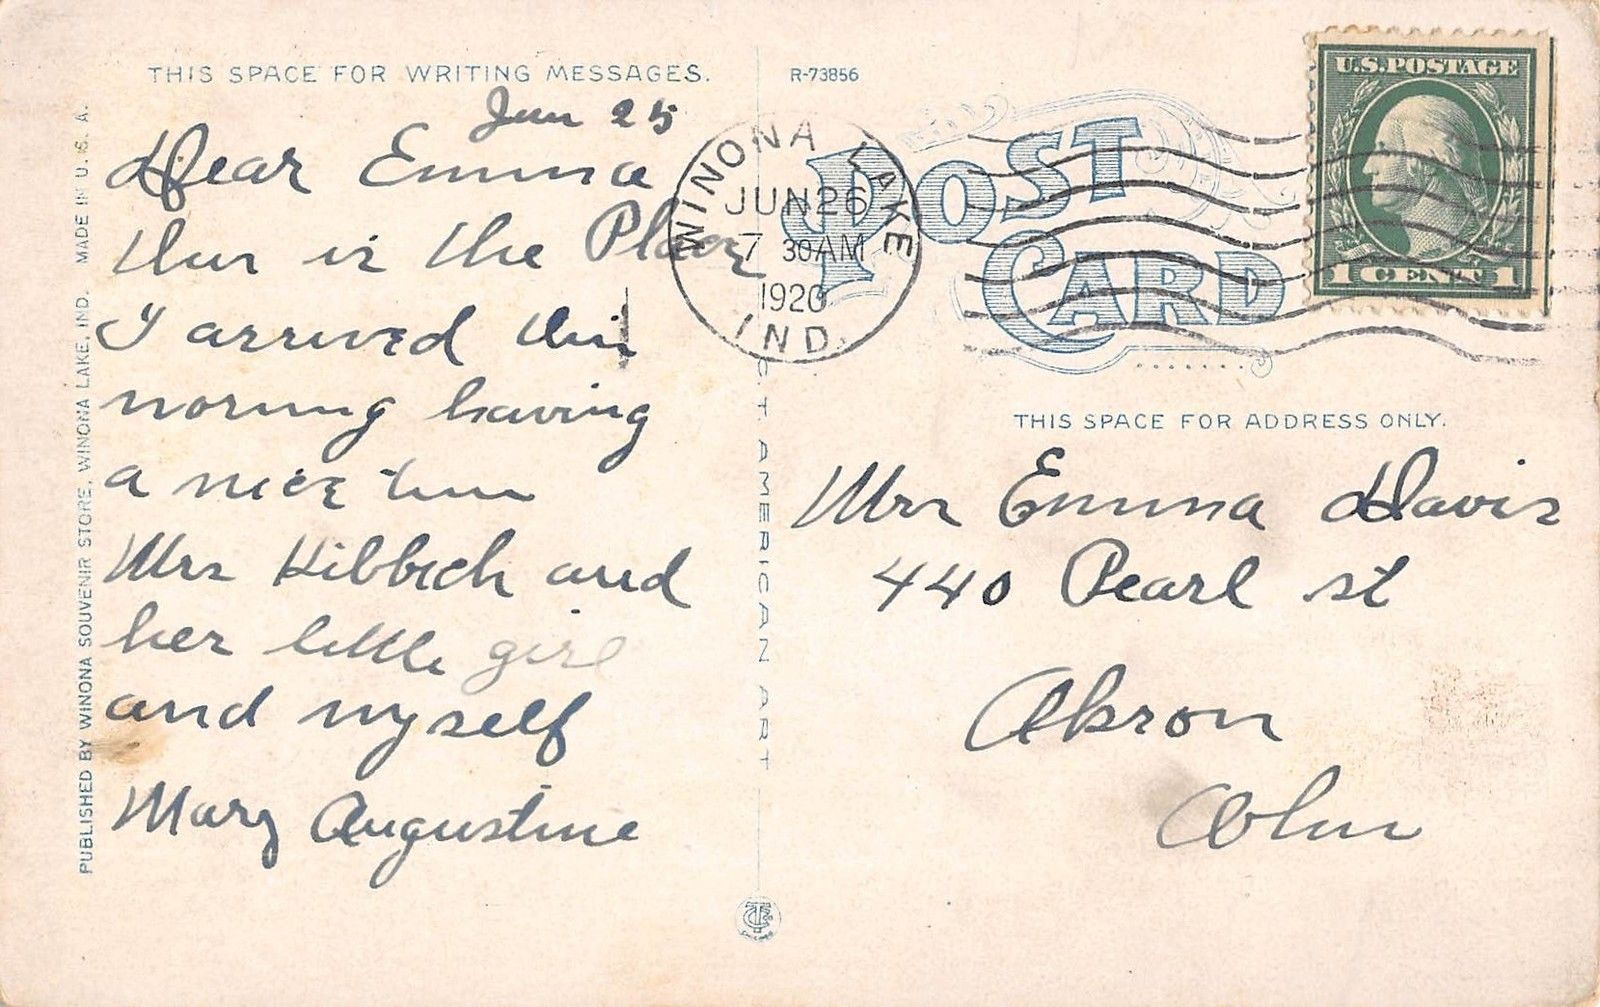 THIS SPACE FOR WRITING MESSAGES.
Jun 25
Dear Emma
this is the Place
I arrived this
morning having
a nice time
Mrs Hibbich and
her little girl
and myself
Mary Augustine
PUBLISHED BY WINONA SOUVENIR STORE, WINONA LAKE, IND. MADE IN U. S. A.
C. T. AMERICAN ART
R-73856
POST
CARD
WINONA LAKE
JUN 26
7 30 AM
1920
IND.
U.S. POSTAGE
1 CENT 1
THIS SPACE FOR ADDRESS ONLY.
Mrs Emma Davis
440 Pearl st
Akron
Ohio